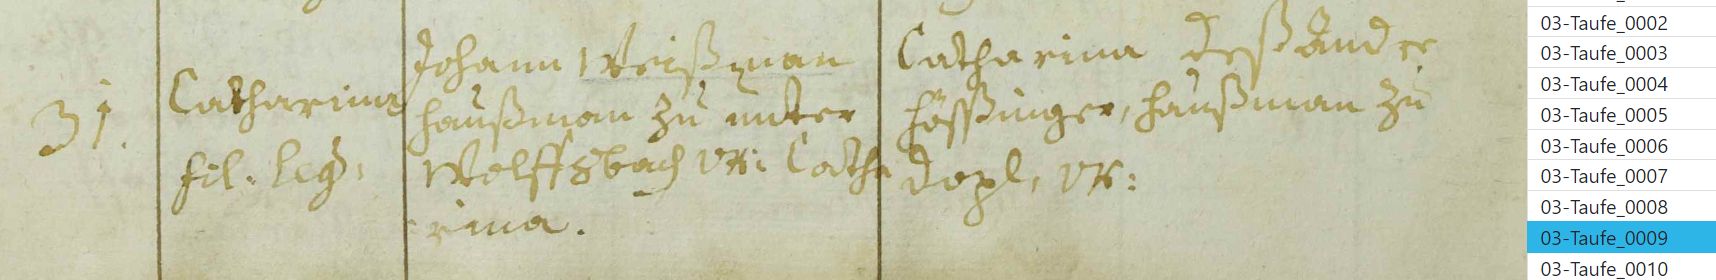 31.
Catharina
fil. leg:
Johann Weißman
haußman zu unter
Wolffsbach ux: Catha
rina.
Catharina deß Andre
Hössinger, haußman zu
dopl, ux:
03-Taufe_0002
03-Taufe_0003
03-Taufe_0004
03-Taufe_0005
03-Taufe_0006
03-Taufe_0007
03-Taufe_0008
03-Taufe_0009
03-Taufe_0010